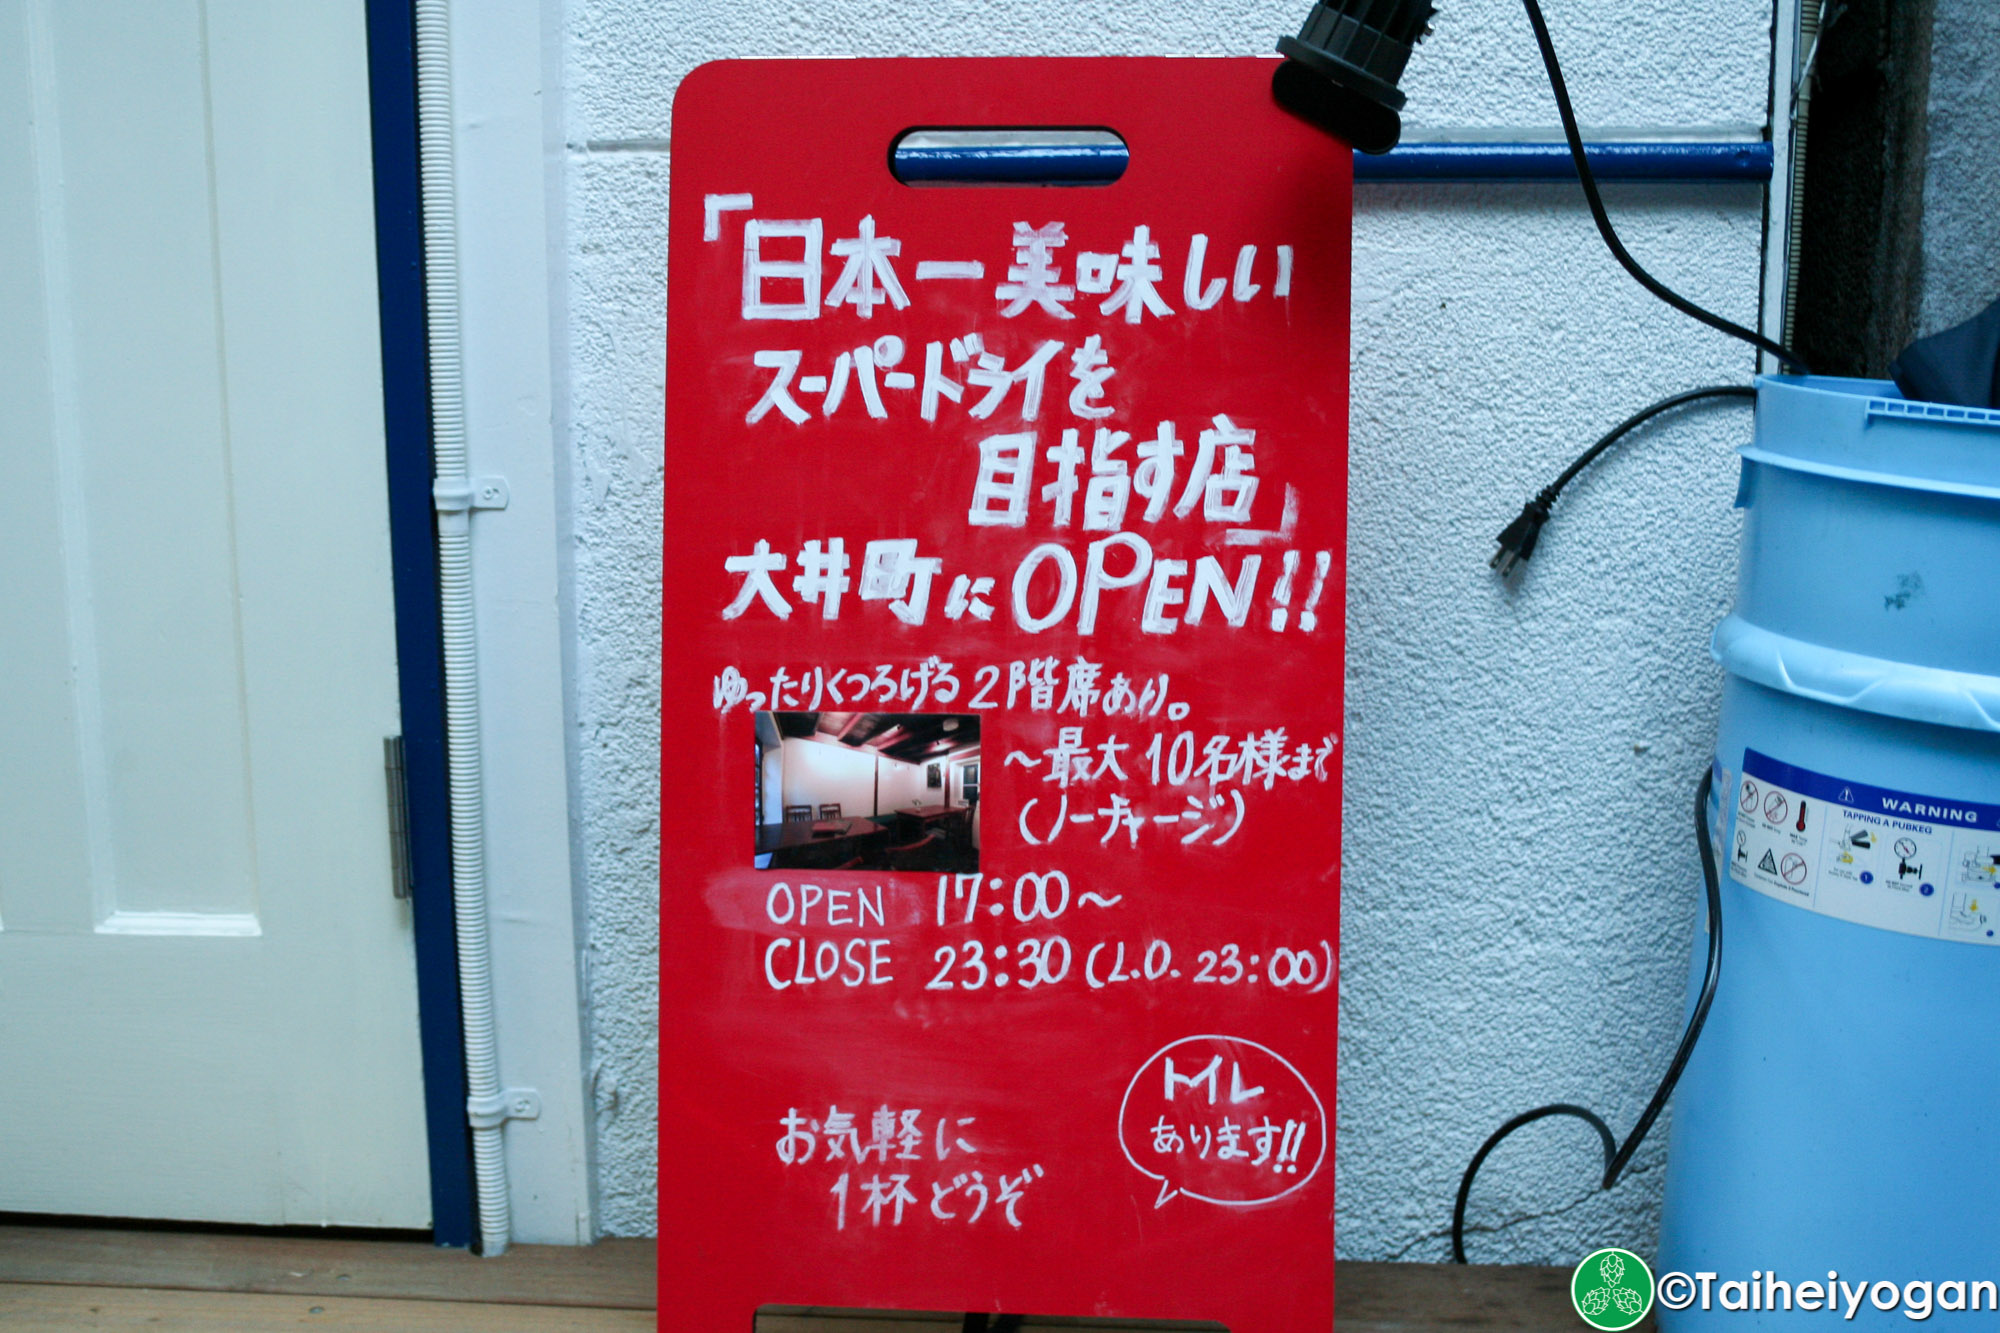 「日本一美味しい
スーパードライを
目指す店」
大井町にOPEN!!
ゆったりくつろげる2階席あり。
～最大10名様まで
(ノーチャージ)
OPEN 17:00～
CLOSE 23:30 (L.O. 23:00)
トイレ
あります!!
お気軽に
1杯どうぞ
WARNING
TAPPING A PUBKEG
©Taiheiyogan